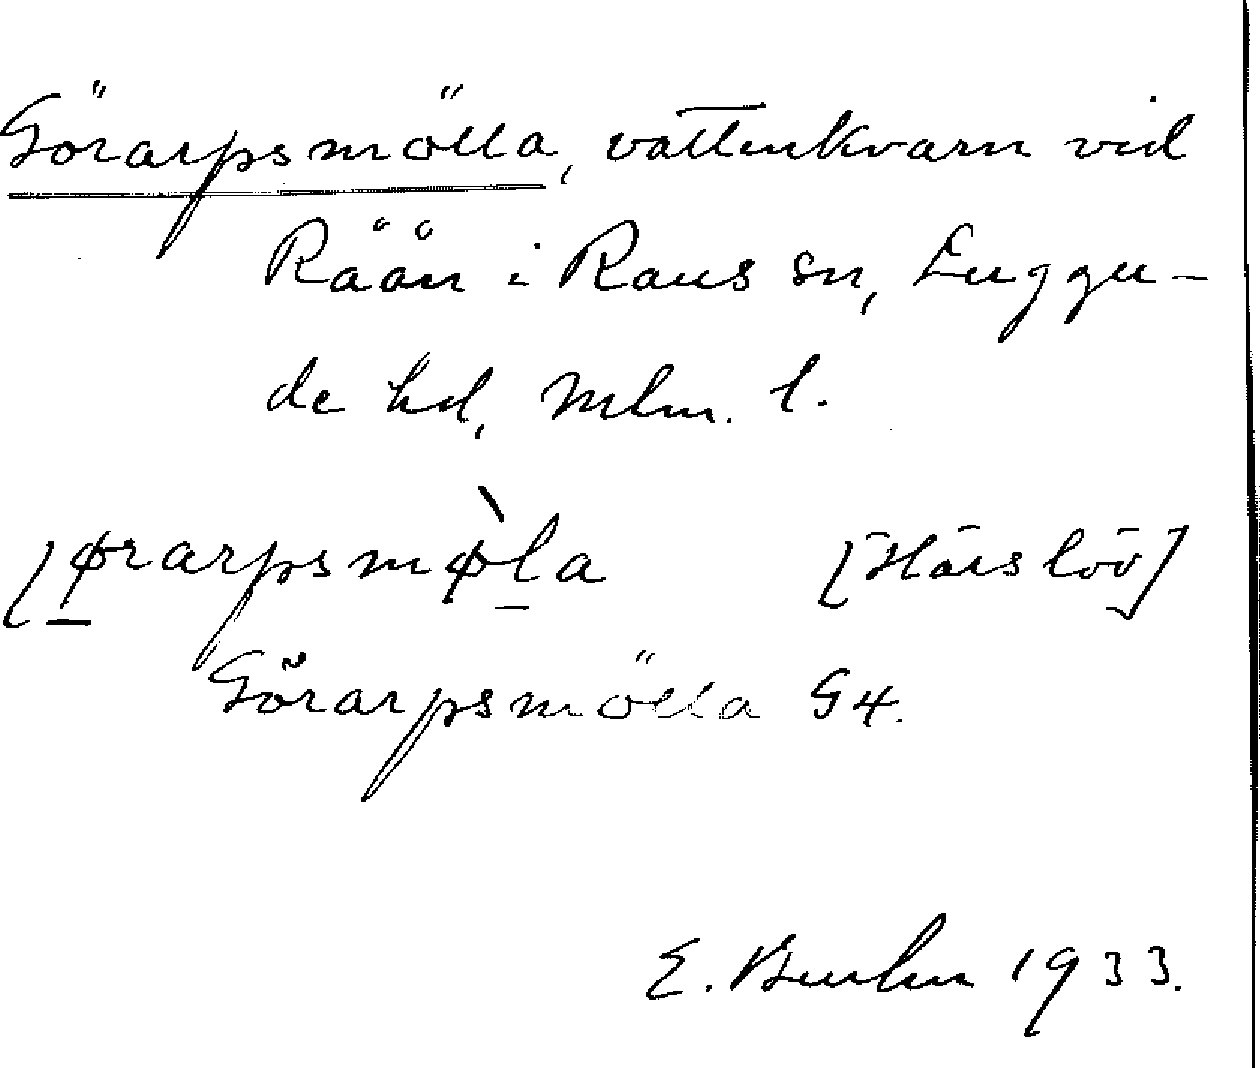 Görarpsmölla, vattenkvarn vid
Råån i Raus sn, Luggu-
de hd, Mlm. l.
[Härslöv]
Görarpsmölla G4.
E. 1933.